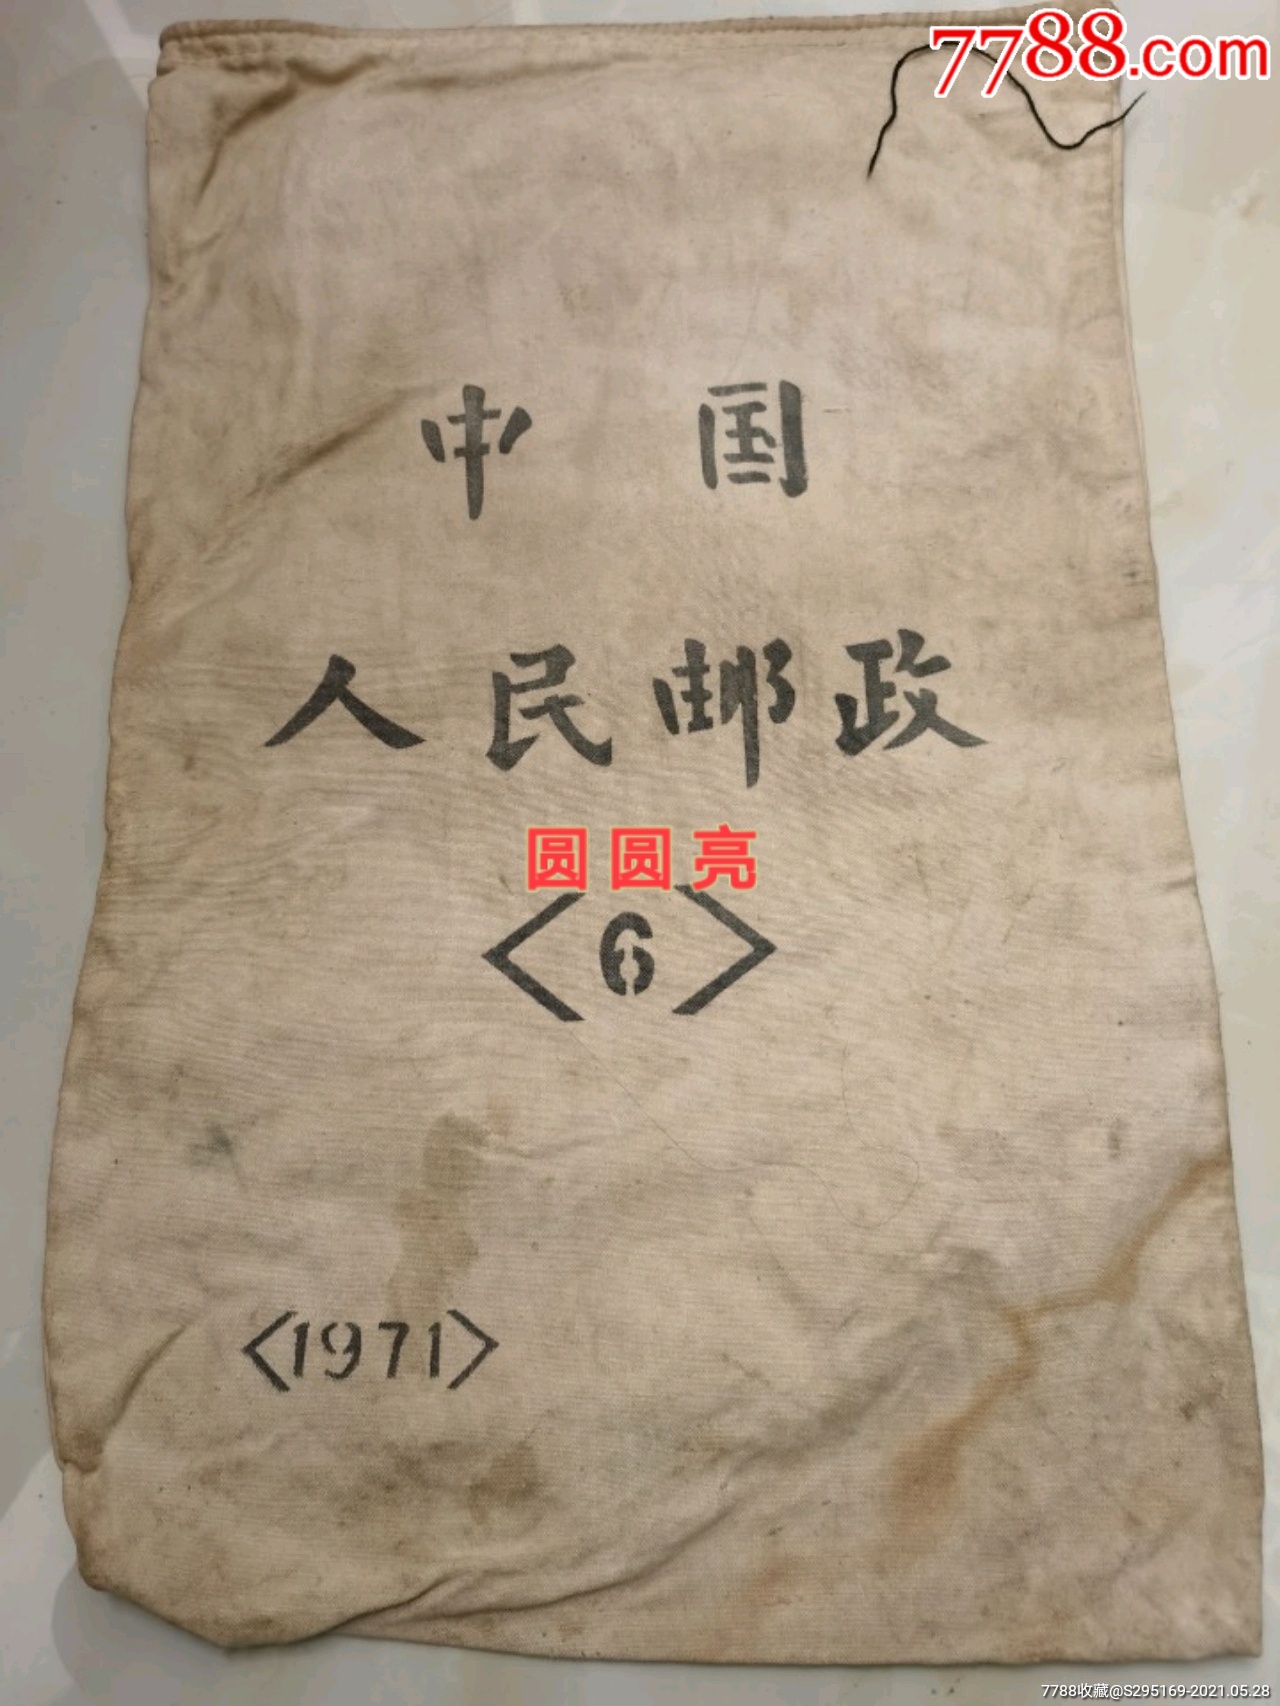 7788.com
中国
人民邮政
圆圆亮
<6>
<1971>
7788收藏@S295169-2021.05.28